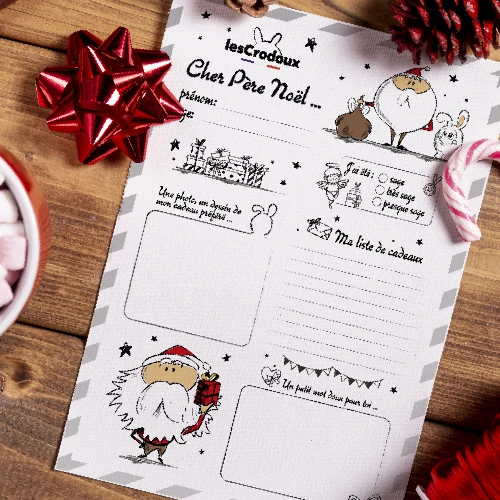 lesCrodoux
Cher Père Noël ...
prénom:
J'ai été :
sage
très sage
presque sage
Une photo, un dessin de
mon cadeau préféré...
Ma liste de cadeaux
Un petit mot doux pour toi ...